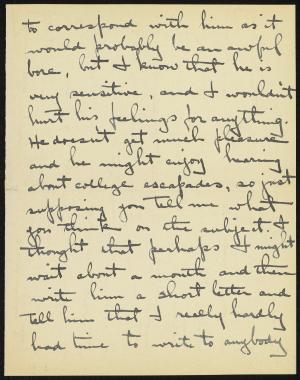 to correspond with him as it
would probably be an awful
bore, but I know that he is
very sensitive, and I wouldn't
hurt his feelings for anything.
He doesn't get much pleasure
and he might enjoy hearing
about college escapades, so just
supposing you tell me what
you think on the subject. I
thought that perhaps I might
wait about a month and then
write him a short letter and
tell him that I really hardly
had time to write to anybody